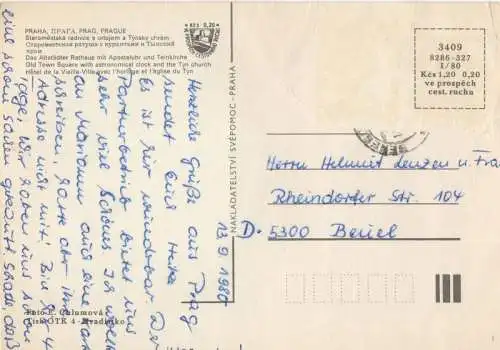 PRAHA, ПРАГА, PRAG, PRAGUE
Staroměstská radnice s orlojem a Týnský chrám
Староместская ратуша с курантами и Тынский храм
Das Altstädter Rathaus mit Aposteluhr und Teinkirche
Old Town Square with astronomical clock and the Tyn church
Hôtel de la Vieille-Ville avec l'horloge et l'église du Tyn
Kčs 0,20
NAKLADATELSTVÍ SVÉPOMOC - PRAHA
3409
8286-327
I/80
Kčs 1,20 0,20
ve prospěch
cest. ruchu
13.9.1980
Herzliche Grüße aus Prag
sendet Euch Heike
Es ist hier wunderbar. Der
Parturbetrieb bietet uns
sehr viel Schönes. Ich wollte
an Mariann auch eine Karte
schreiben, hatte aber ihre
Adresse nicht mit. Bin 3-4
Tage. Wir haben uns schon
eine schöne Sachen gekauft. Schade, daß
Herrn Helmut Lenzen u. Frau
Rheindorfer Str. 104
D. 5300 Beuel
Foto F. Culumová
Tisk OTK 4 - Hradištko